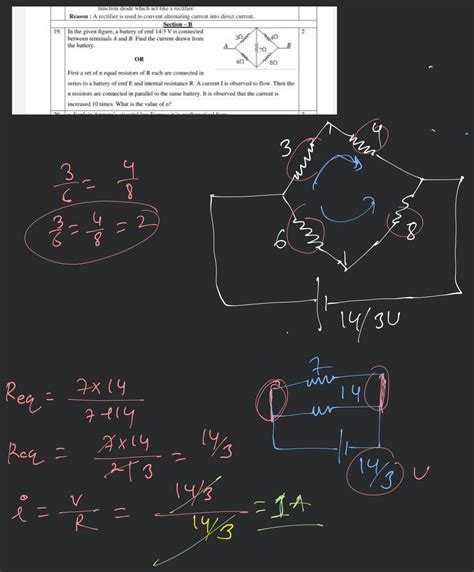 Junction diode which act like a rectifier.
Reason : A rectifier is used to convert alternating current into direct current.
Section – B
19. In the given figure, a battery of emf 14/3 V is connected 2
between terminals A and B. Find the current drawn from
the battery.
2Ω 4Ω
A 7Ω B
6Ω 8Ω
OR
First a set of n equal resistors of R each are connected in
series to a battery of emf E and internal resistance R. A current I is observed to flow. Then the
n resistors are connected in parallel to the same battery. It is observed that the current is
increased 10 times. What is the value of n?
3 4
6 8
14/3 V
3/6 = 4/8
3/6 = 4/8 = 2
7
14
14/3 V
Req = 7×14 / 7+14
Req = 7×14 / 21 3 = 14/3
i = V/R = 14/3 / 14/3 = 1A